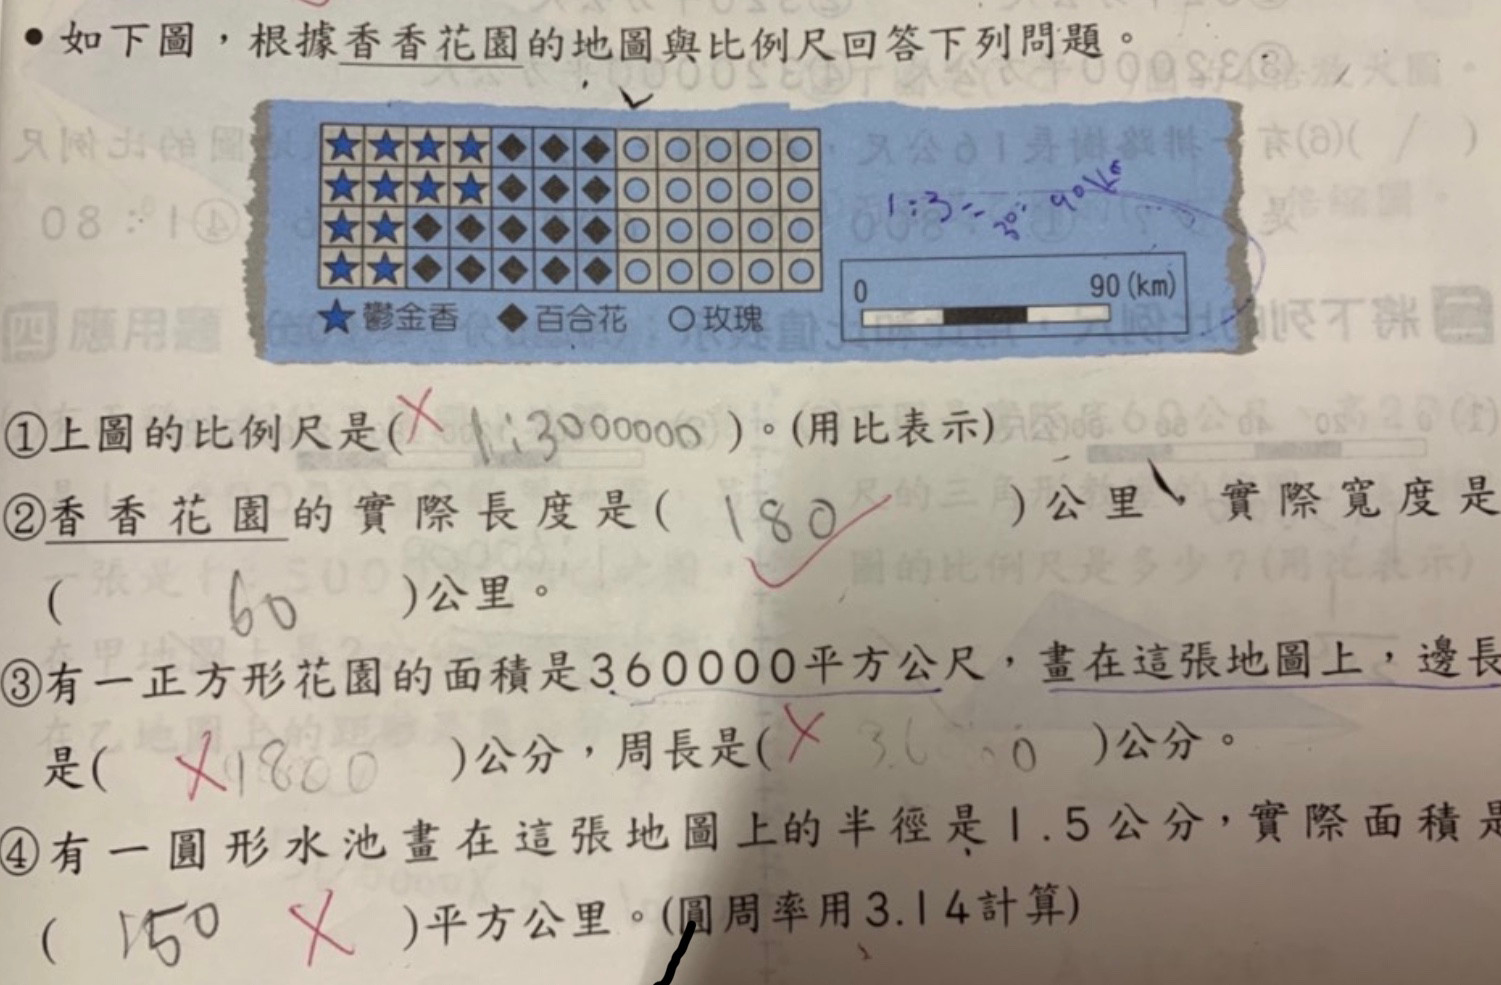 •如下圖，根據香香花園的地圖與比例尺回答下列問題。
1:3=30:90km
0 90(km)
★鬱金香 ◆百合花 ○玫瑰
①上圖的比例尺是( 1:3000000 )。(用比表示)
②香香花園的實際長度是( 180 )公里、實際寬度是
( 60 )公里。
③有一正方形花園的面積是360000平方公尺，畫在這張地圖上，邊長
是( 1800 )公分，周長是( )公分。
④有一圓形水池畫在這張地圖上的半徑是1.5公分，實際面積是
( 150 )平方公里。(圓周率用3.14計算)